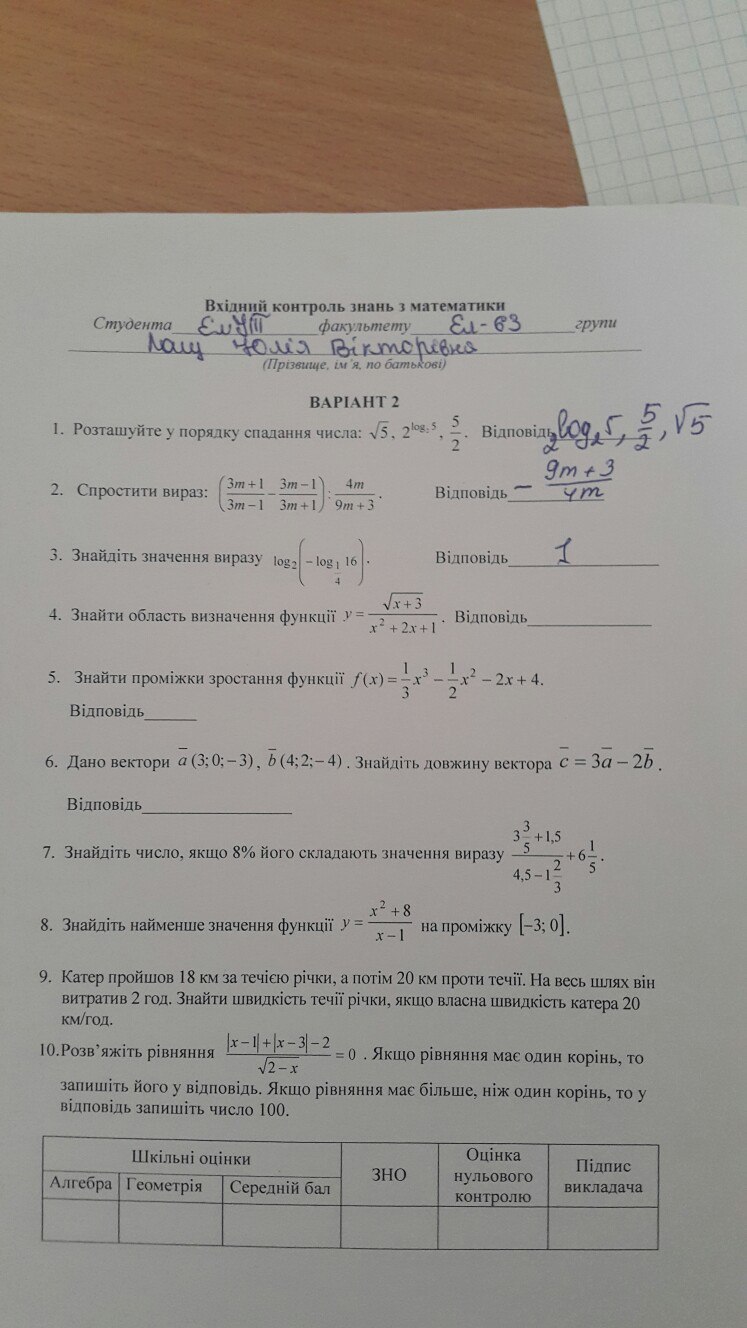 Вхідний контроль знань з математики
Студента ЕлУІІІ факультету Ел-63 групи
Лащ Юлія Вікторівна
(Прізвище, ім'я, по батькові)
ВАРІАНТ 2
1. Розташуйте у порядку спадання числа: √5, 2^{log₂5}, 5/2. Відповідь 2^{log₂5}, 5/2, √5
2. Спростити вираз: ((3m+1)/(3m−1) − (3m−1)/(3m+1)) : 4m/(9m+3). Відповідь − (9m+3)/(4m)
3. Знайдіть значення виразу log₂(−log_{1/4} 16). Відповідь 1
4. Знайти область визначення функції y = √(x+3)/(x²+2x+1). Відповідь
5. Знайти проміжки зростання функції f(x) = 1/3 x³ − 1/2 x² − 2x + 4.
Відповідь
6. Дано вектори a̅ (3; 0; −3), b̅ (4; 2; −4). Знайдіть довжину вектора c̅ = 3a̅ − 2b̅.
Відповідь
7. Знайдіть число, якщо 8% його складають значення виразу (3 3/5 + 1,5)/(4,5 − 1 2/3) + 6 1/5.
8. Знайдіть найменше значення функції y = (x²+8)/(x−1) на проміжку [−3; 0].
9. Катер пройшов 18 км за течією річки, а потім 20 км проти течії. На весь шлях він
витратив 2 год. Знайти швидкість течії річки, якщо власна швидкість катера 20
км/год.
10. Розв'яжіть рівняння (|x−1|+|x−3|−2)/√(2−x) = 0. Якщо рівняння має один корінь, то
запишіть його у відповідь. Якщо рівняння має більше, ніж один корінь, то у
відповідь запишіть число 100.
Шкільні оцінки ЗНО Оцінка нульового контролю Підпис викладача
Алгебра Геометрія Середній бал